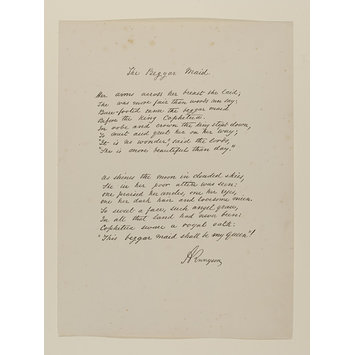 The Beggar Maid.
Her arms across her breast she laid;
She was more fair than words can say:
Bare-footed came the beggar maid
Before the king Cophetua.
In robe and crown the king stept down,
To meet and greet her on her way;
"It is no wonder," said the lords,
"She is more beautiful than day."
As shines the moon in clouded skies,
She in her poor attire was seen:
One praised her ancles, one her eyes,
One her dark hair and lovesome mien.
So sweet a face, such angel grace,
In all that land had never been:
Cophetua sware a royal oath:
"This beggar maid shall be my Queen"!
A Tennyson